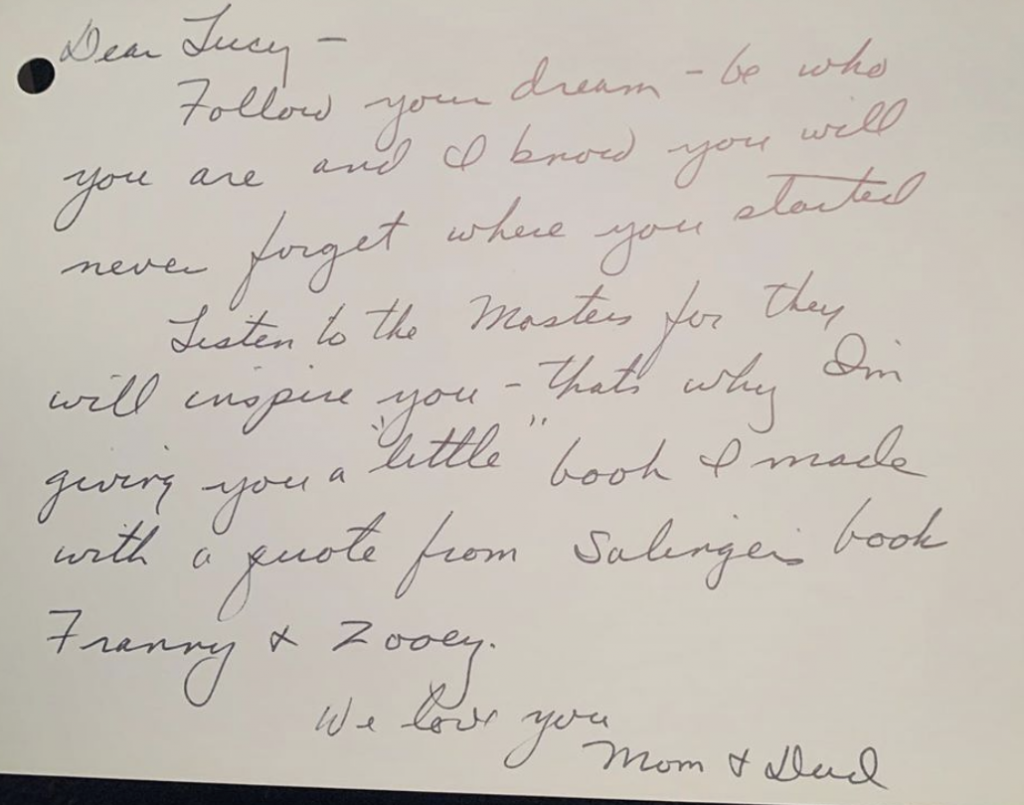 Dear Lucy -
Follow your dream - be who
you are and I know you will
never forget where you started
Listen to the Masters for they
will inspire you - thats why I'm
giving you a "little" book I made
with a quote from Salingers book
Franny & Zooey.
We love you
Mom & Dad